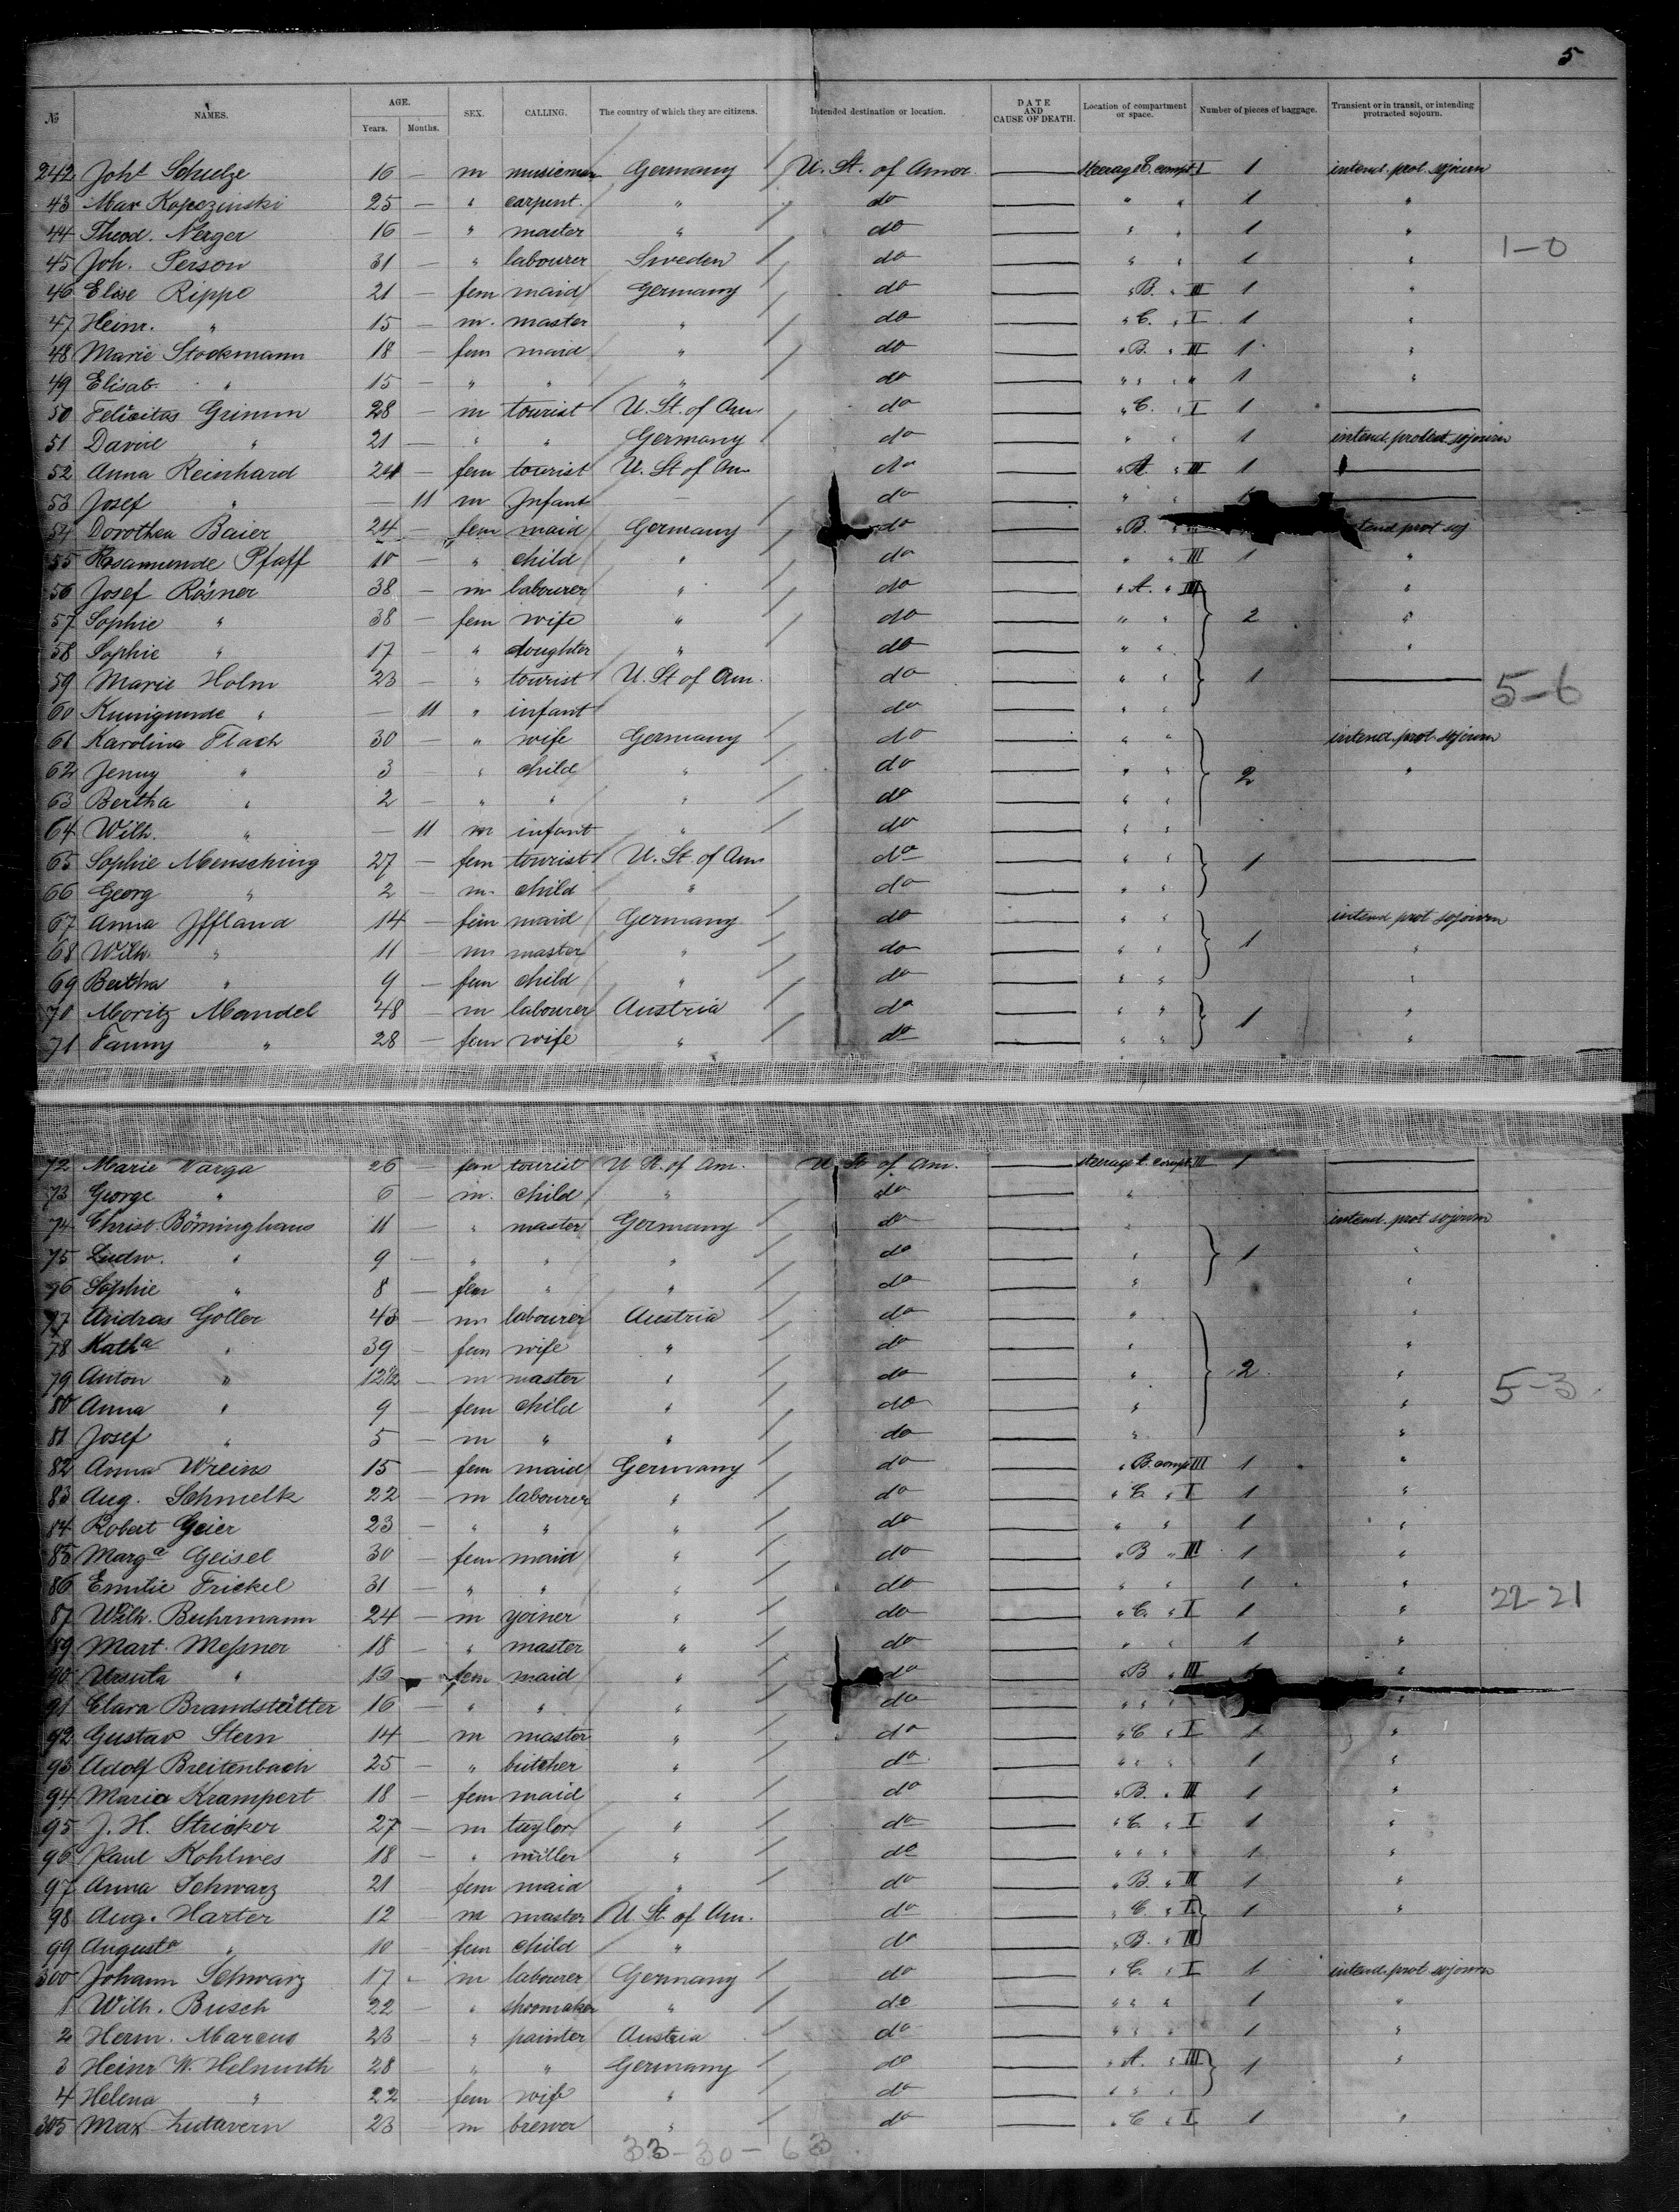 5
№ NAMES. AGE. Years. Months. SEX. CALLING. The country of which they are citizens. Intended destination or location. DATE AND CAUSE OF DEATH. Location of compartment or space. Number of pieces of baggage. Transient or in transit, or intending protracted sojourn.
242 Joht Schulze 16 — m musicman Germany U. St. of Amer. — steerage C. compt. I 1 intend. prot. sojourn
43 Max Kopczinski 25 — " carpent. " do — " " 1 "
44 Theod. Nerger 16 — " master " do — " " 1 "
45 Joh. Person 31 — " labourer Sweden do — " " 1 "
1-0
46 Elise Rippe 21 — fem maid Germany do — " B. " III 1 "
47 Heinr. " 15 — m. master " do — " C. " I 1 "
48 Marie Stockmann 18 — fem maid " do — " B. " III 1 "
49 Elisab. " 15 — " " " do — " " " " 1 "
50 Felicitas Grimm 28 — m tourist U. St. of Am. do — " C. " I 1 —
51 David " 21 — " " Germany do — " " 1 intend. protect. sojourn
52 Anna Reinhard 24 — fem tourist U. St of Am. do — " A. " III 1 —
53 Josef " — 11 m Infant — do — " " —
54 Dorothea Baier 24 — fem maid Germany do — " B. tend prot soj
55 Rosamunde Pfaff 10 — " child " do — " " III 1 "
56 Josef Rösner 38 — m labourer " do — " A. " III "
57 Sophie " 38 — fem wife " do — " " 2 "
58 Sophie " 17 — " doughter " do — " " "
59 Marie Holm 23 — " tourist U. St of Am. do — " " 1 —
5-6
60 Kunigunde " — 11 " infant do — " "
61 Karolina Flach 30 — " wife Germany do — " " intend. prot. sojourn
62 Jenny " 3 — " child " do — " " 2 "
63 Bertha " 2 — " " " do — " "
64 Wilh. " — 11 m infant " do — " "
65 Sophie Mensching 27 — fem tourist U. St. of Am do — " " 1 —
66 Georg " 2 — m. child " do — " "
67 Anna Iffland 14 — fem maid Germany do — " " intend prot sojourn
68 Wilh. " 11 — m master " do — " " 1 "
69 Bertha " 9 — fem child " do — " " "
70 Moritz Mandel 48 — m labourer Austria do — " " 1 "
71 Fanny " 28 — fem wife " do — " " "
72 Marie Varga 26 — fem tourist U St. of Am. U St of Am. — steerage compt. III 1 —
73 George " 6 — m. child " do — " —
74 Christ. Börninghaus 11 — " master Germany do — " intend. prot sojourn
75 Ludw. " 9 — " " " do — " 1 "
76 Sophie " 8 — fem " " do — " "
77 Andreas Goller 43 — m labourer Austria do — " "
78 Katha " 39 — fem wife " do — " "
79 Anton " 12 1/2 — m master " do — " 2 "
5-3
80 Anna " 9 — fem child " do — " "
81 Josef " 5 — m " " do — " "
82 Anna Wreins 15 — fem maid Germany do — " B. comp III 1 "
83 Aug. Schmelk 22 — m labourer " do — " C. " I 1 "
84 Robert Geier 23 — " " " do — " " 1 "
85 Marga Geisel 30 — fem maid " do — " B " III 1 "
86 Emilie Frickel 31 — " " " do — " " 1 "
22-21
87 Wilh. Buhrmann 24 — m joiner " do — " C. " I 1 "
89 Mart. Meßner 18 — " master " do — " " 1 "
90 Ursula " 19 — fem maid " do — " B " III "
91 Clara Brandstätter 16 — " " " do — " " " "
92 Gustav Stern 14 — m master " do — " C " I 1 "
93 Adolf Breitenbach 25 — " butcher " do — " " " 1 "
94 Maria Krampert 18 — fem maid " do — " B. " III 1 "
95 J. H. Stricker 27 — m taylor " do — " C. " I 1 "
96 Paul Kohlwes 18 — " miller " do — " " " 1 "
97 Anna Schwarz 21 — fem maid " do — " B. " III 1 "
98 Aug. Harter 12 — m master U. St. of Am. do — " C. " I 1 "
99 Augusta " 10 — fem child " do — " B. " III
300 Johann Schwarz 17 - m labourer Germany do — " C. " I 1 intend. prot sojourn
1 Wilh. Busch 22 — " shoomaker " do — " " " 1 "
2 Herm. Marcus 23 — " painter Austria do — " " " 1 "
3 Heinr W. Helmuth 28 — " " Germany do — " A. " III 1 "
4 Helena " 22 — fem wife " do — " " "
305 Max Zutavern 23 — m brewer " do — " C " I 1 "
33-30-63